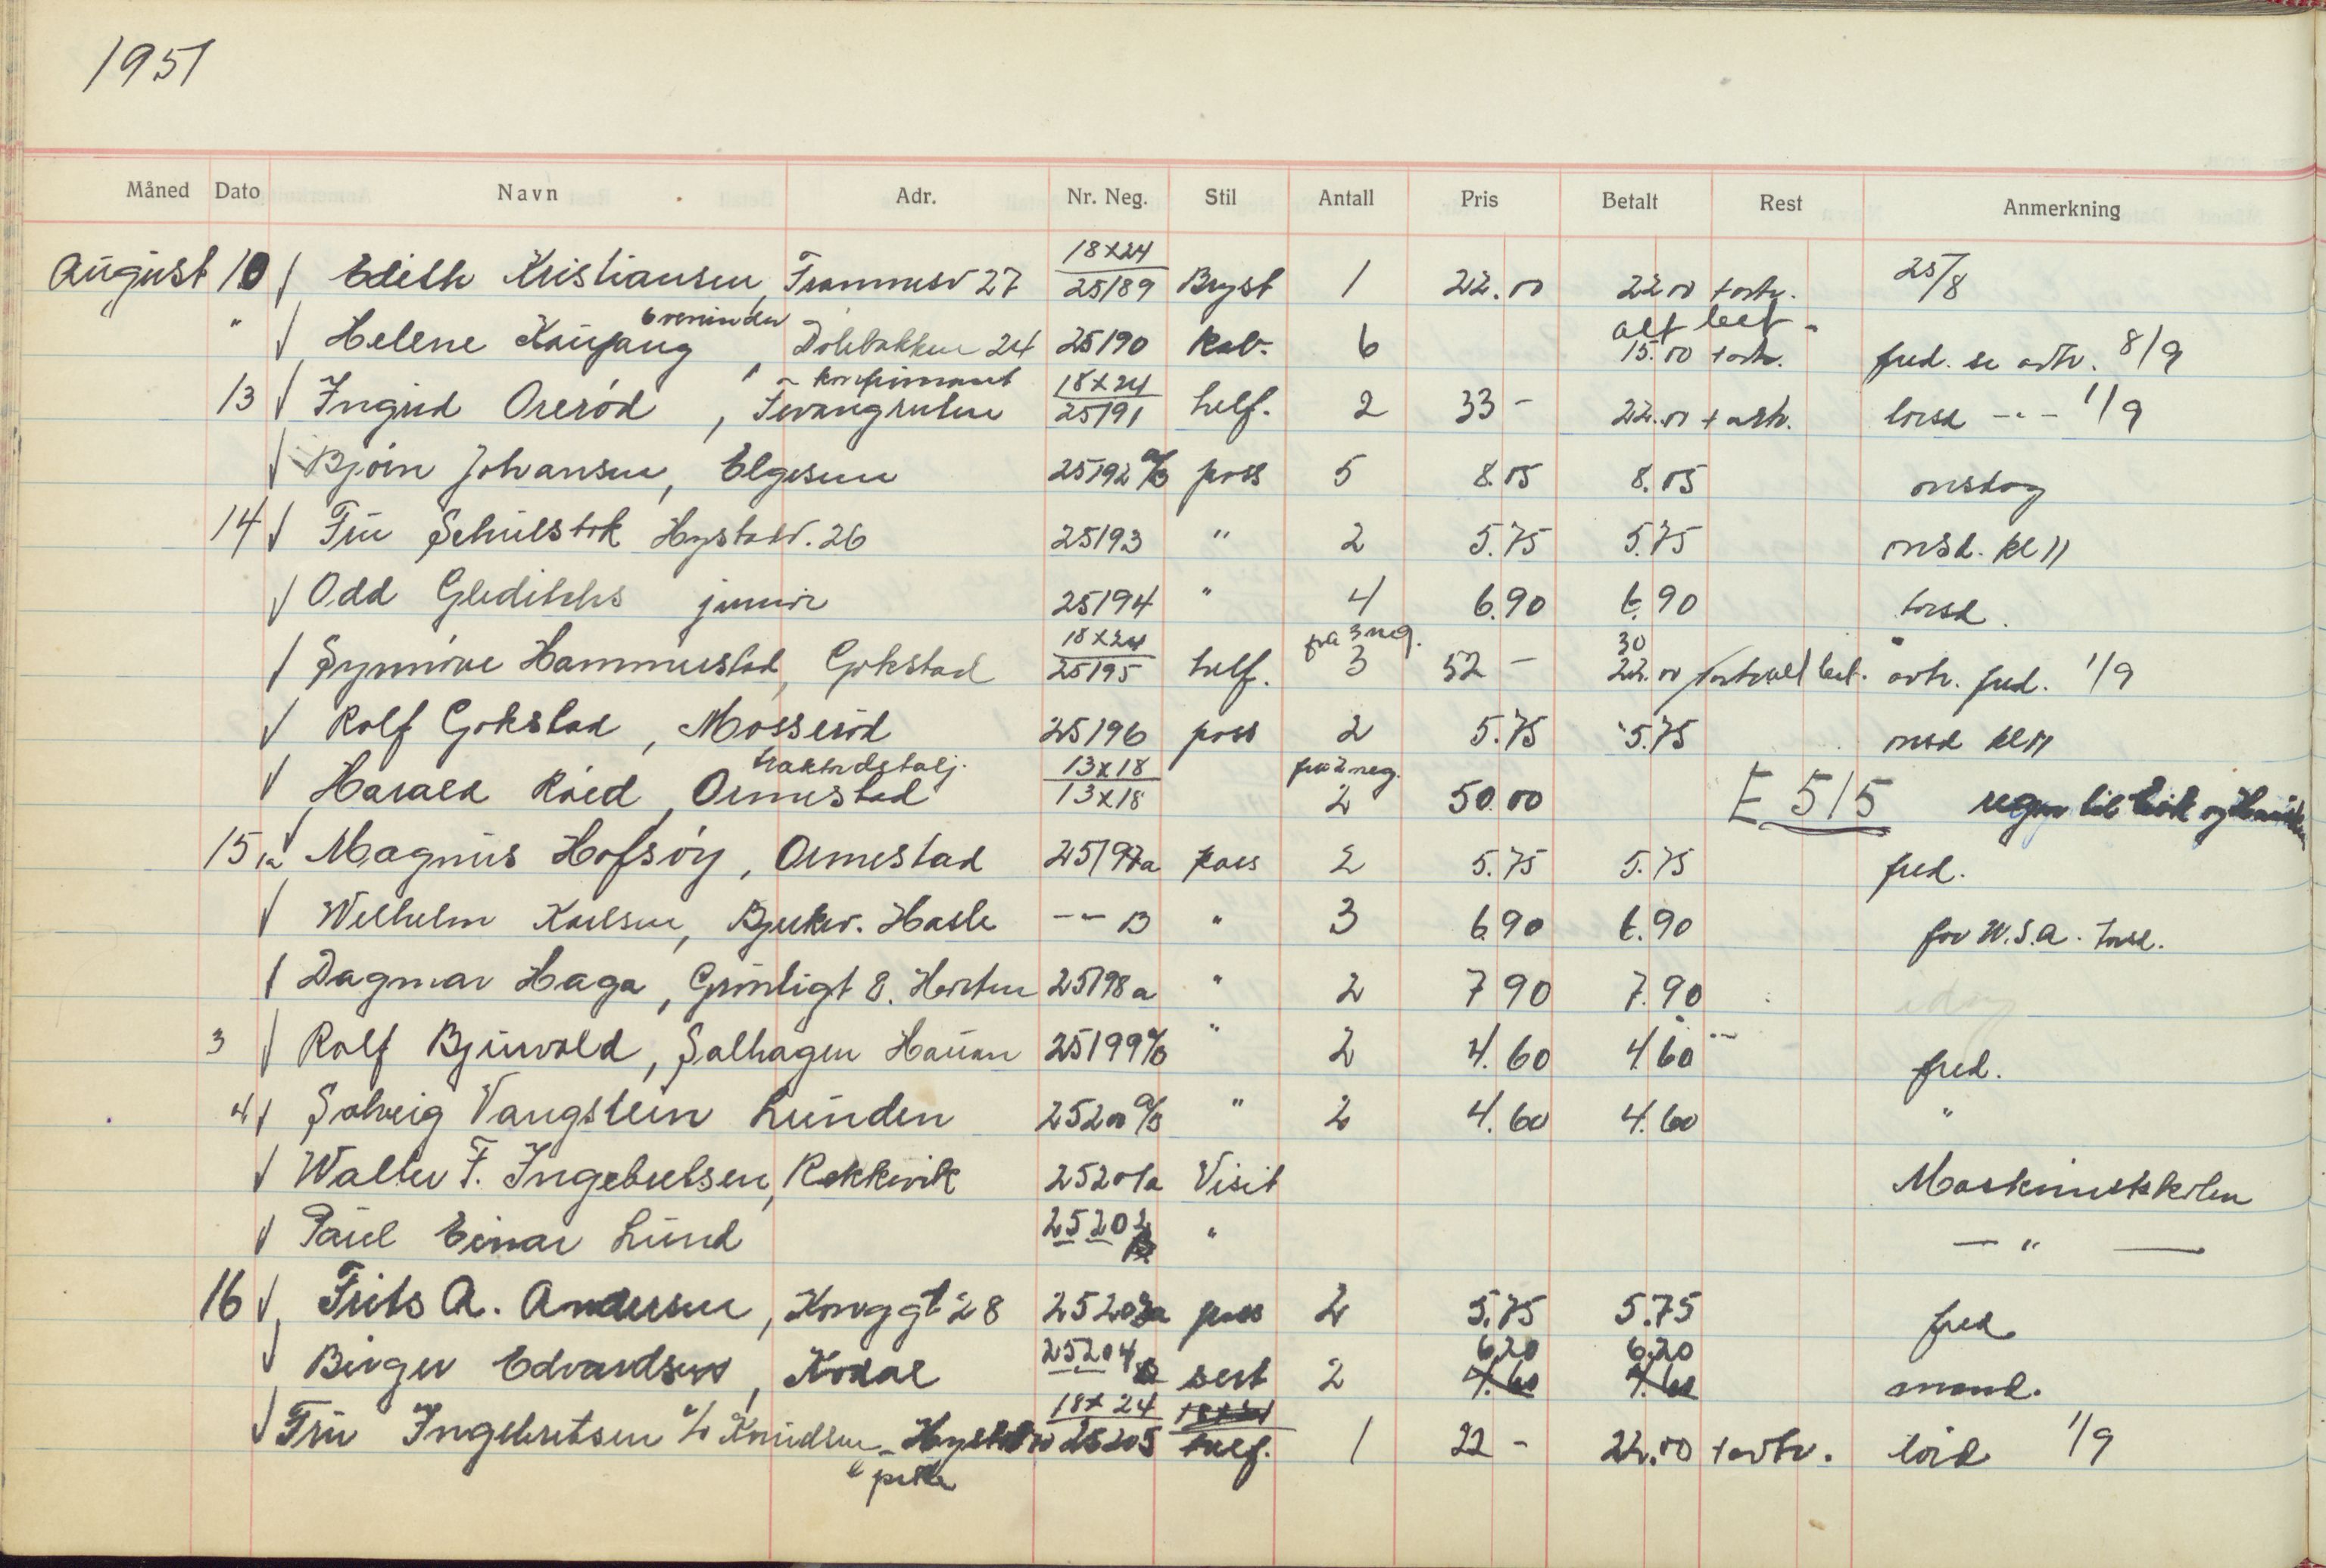 1951
Måned Dato Navn Adr. Nr. Neg. Stil Antall Pris Betalt Rest Anmerkning
August 10 Edith Kristiansen, 27 18x24 25189 Bryst 1 22.00 22 00 + ortv. 25/8
" Helene 24 25190 kab. 6 alt bet. 15.00 + ortv. fred. se ortv. 8/9
13 Ingrid Orerød, konfirmant 18x24 25191 helf. 2 33 - 22.00 + ortv. 1/9
Bjørn Johansen, Elgesem 25192 a/b pass 5 8.05 8.05 onsdag
14 Frü Schulstok Hystadv. 26 25193 " 2 5.75 5.75 onsd. kl 11
Odd Gleditchs junior 25194 " 4 6.90 6.90 torsd.
Synnöve Hammerstad, Gokstad 18x24 25195 helf. på 3 neg. 3 52 - 30 22.00 ortv. fred. 1/9
Rolf Gokstad, Mosserød 25196 pass 2 5.75 5.75 onsd kl 11
Harald Röed, Ormestad 13x18 13x18 fra 2 neg. 2 50.00 E 515
15 Magnus Hofsöy, Ormestad 25197a pass 2 5.75 5.75 fred.
Wilhelm Karlsen, Bjerkev. Hasle -"- B " 3 6.90 6.90 for W.S.A. torsd.
Dagmar Haga, Grönligt 8. Horten 25198 a " 2 7 90 7.90 idag
3 Rolf Bjuvold, Solhagen Haüan 25199 a/b " 2 4.60 4.60 fred.
4 Solveig Vangstein Lunden 25200 a/b " 2 4.60 4.60 "
Walter F. Ingebretsen, Rekkevik 25201a Visit Maskinistskolen
Paül Einar Lünd 25202 B " - " -
16 Frits A. Andersen, Kongegt 28 25203a pass 2 5.75 5.75 fred.
Birger Edvardsen, Kodal 25204 B sert 2 6.20 4.60 6.20 4.60 mand.
Frü Ingebretsen c/o Knüdsen 18x24 18x24 25205 helf. 1 22 - 22.00 + ortv. lörd 1/9